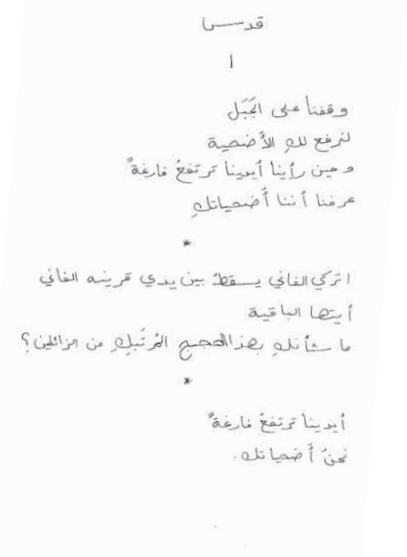 قدس
١
وقفنا على الجَبَل
لنرفع لكِ الأضحية
وحين رأينا أيدينا ترتفعُ فارغةً
عرفنا أننا أضحياتكِ
*
اتركي الفاني يسقطُ بين يدي قرينه الفاني
أيتها الباقية
ما شأنكِ بهذا الحجيج المُرتَبِكِ من الزائلين؟
*
أيدينا ترتفعُ فارغةً
نحنُ أضحياتك.